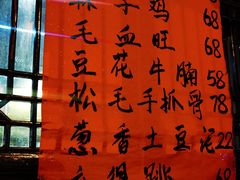 鸡 68
毛血旺 68
豆花牛腩 58
松毛手抓骨 78
葱香土豆泥 22
68